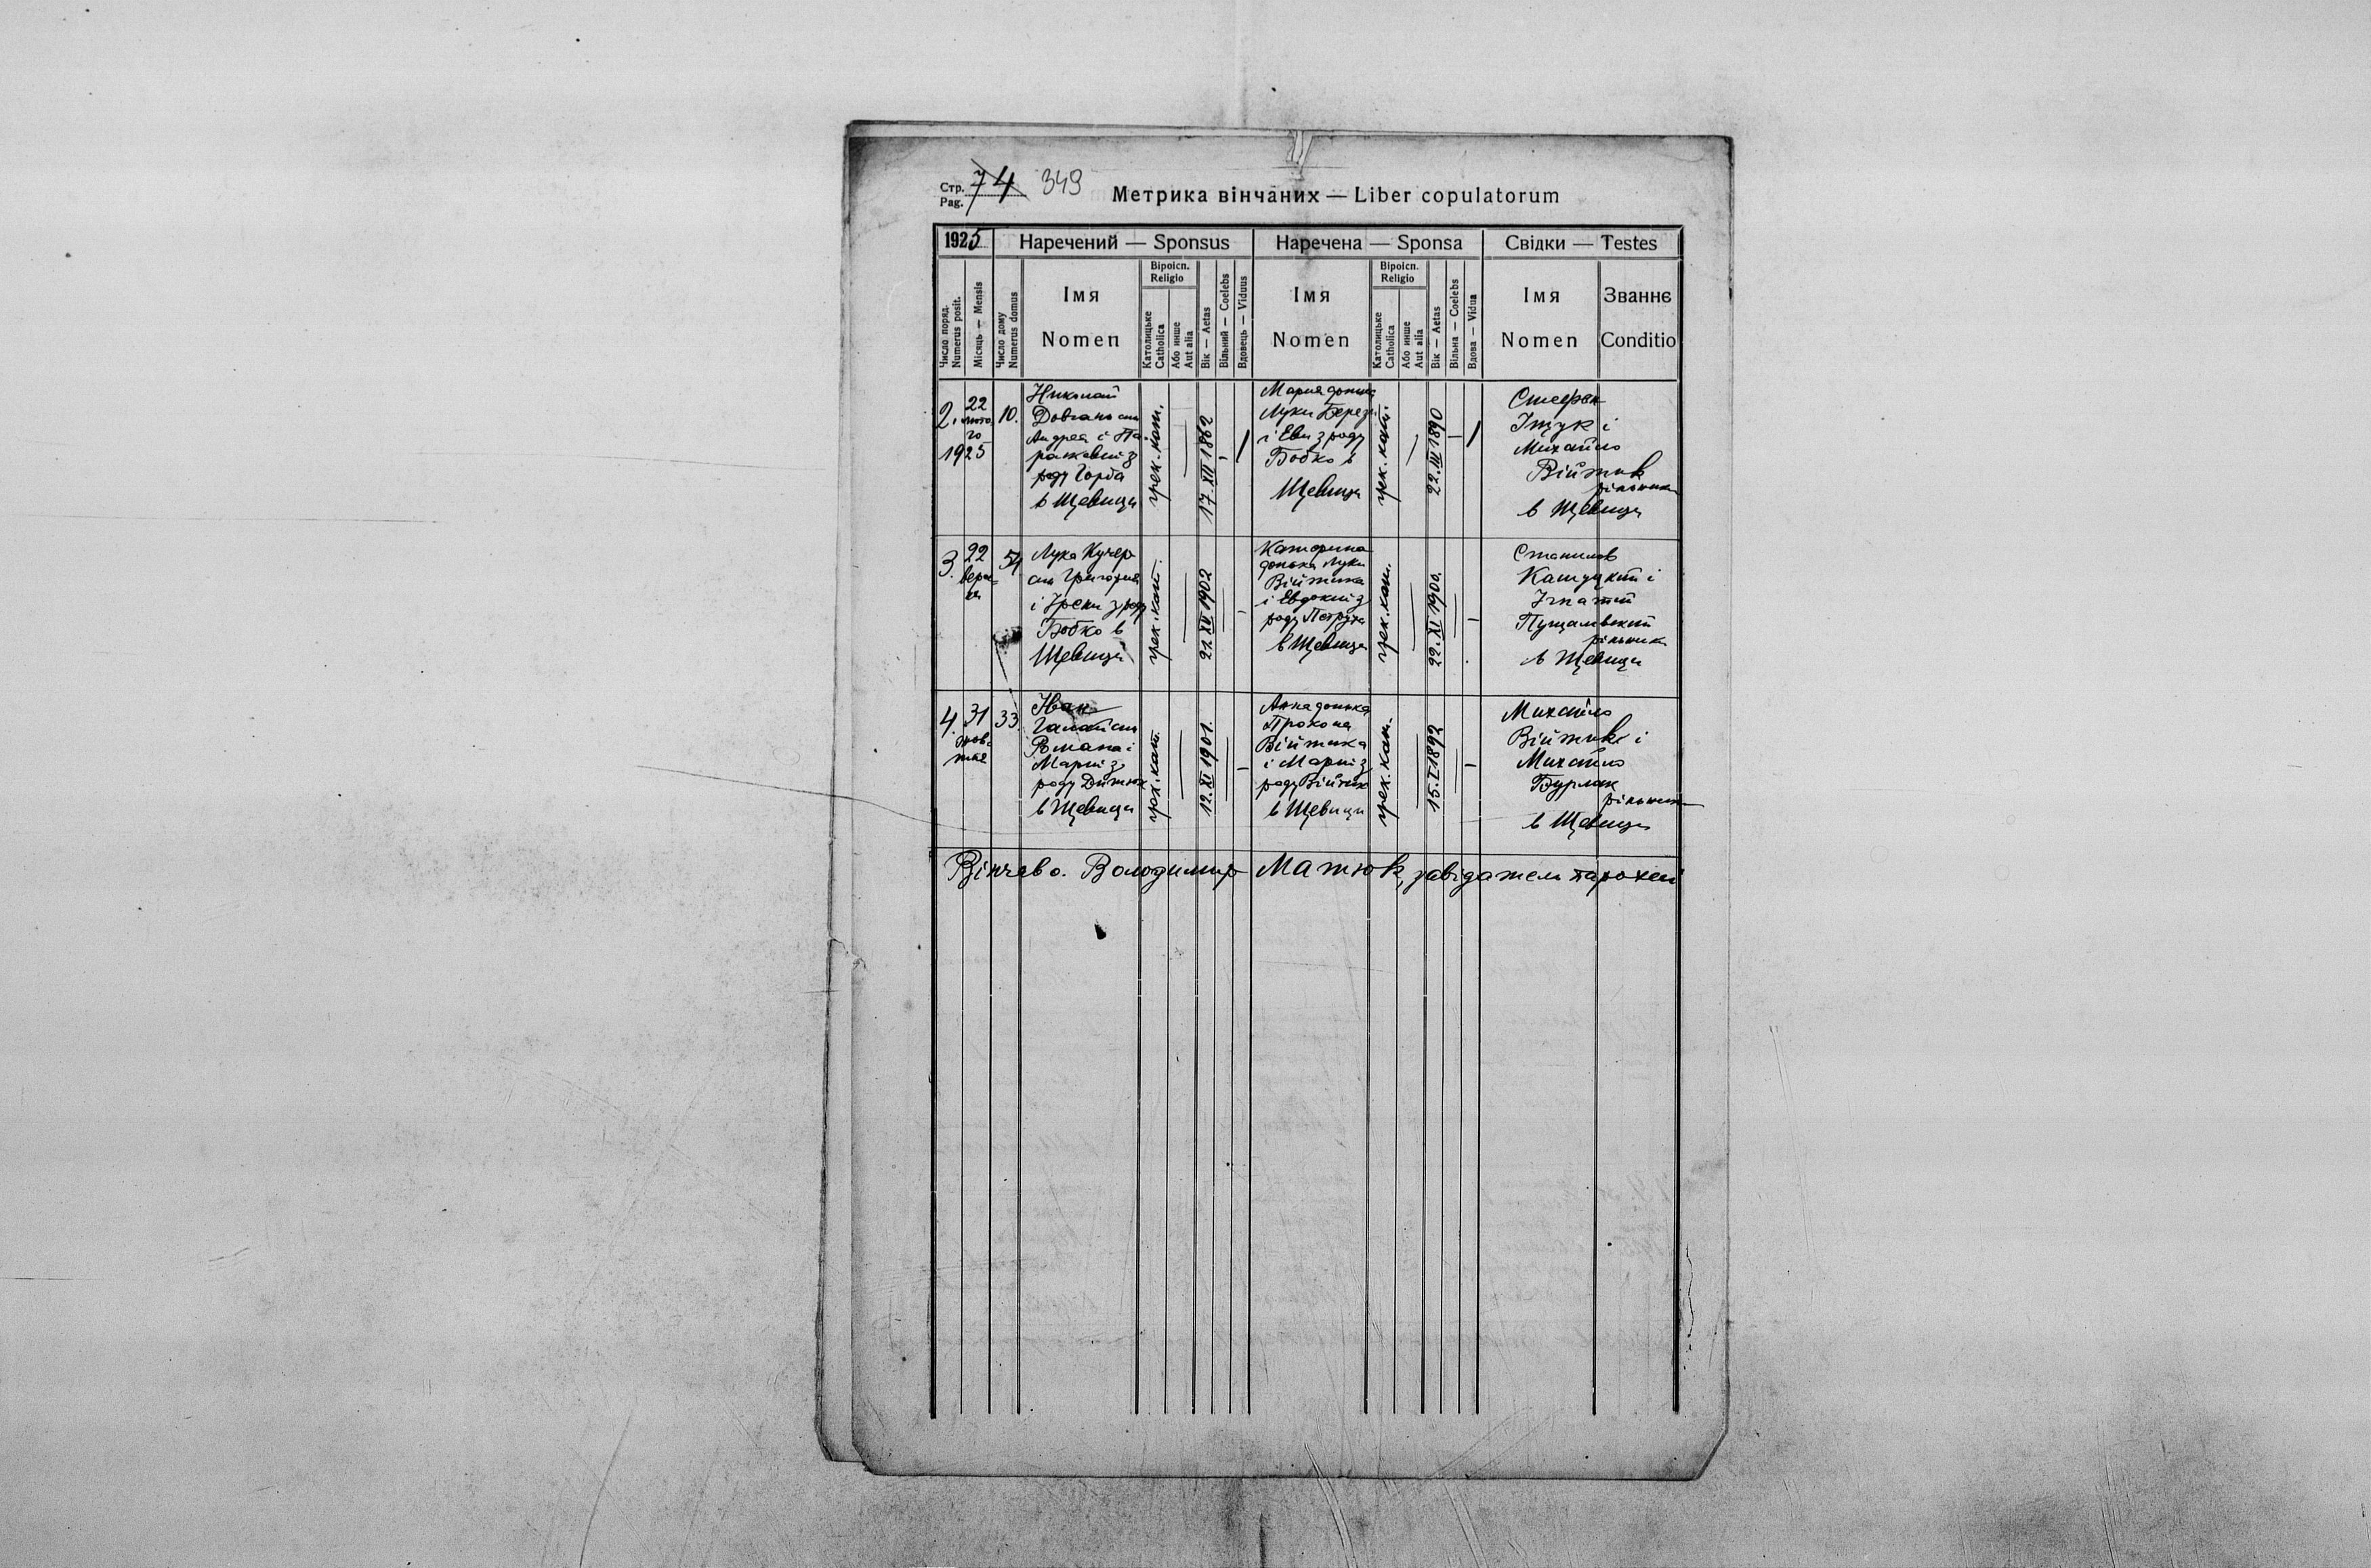 Стр. 74 349
Pag.
Метрика вінчаних — Liber copulatorum
1925 Наречений — Sponsus Наречена — Sponsa Свідки — Testes
Число поряд. Numerus posit.
Місяць — Mensis
Число дому Numerus domus
Імя Nomen
Віроісп. Religio
Католицьке Catholica
Або инше Aut alia
Вік — Aetas
Вільний — Coelebs
Вдовець — Viduus
Імя Nomen
Віроісп. Religio
Католицьке Catholica
Або инше Aut alia
Вік — Aetas
Вільна — Coelebs
Вдова — Vidua
Імя Nomen
Званнє Conditio
2.
22
люто
го
1925
10.
Николай
Довгань син
Андрея і Па-
раскевии з
роду Горба
в Щевици
грек.-кат.
17.XII 1862
Мария донька
Луки
і Еви з роду
Бобко в
Щевици
грек.-кат.
22.III 1890
Стефан
Іщук і
Михайло
Війтик
рільники
в Щевици
3.
22
верес=
ня
54
Лука Кучер
син Григория
і Ірени з роду
Бобко в
Щевици
грек.кат.
Катерина
донька Луки
Війтика
і Евдокиї з
роду
в Щевици
грек.кат.
22.XI 1900.
Станислав
і
Ігнатий
рільники
в Щевици
4.
31
жов-
тня
33.
Іван
син
Романа і
Мариї з
роду
в Щевици
грек.кат.
12.XI 1901.
Анна донька
Прокопа
Війтика
і Мариї з
роду Війтик
в Щевици
грек.кат.
15.I 1892
Михайло
Війтик і
Михайло
Бурлак
рільники
в Щевици
Вінчав о. Володимир Матюк, завідатель парохії